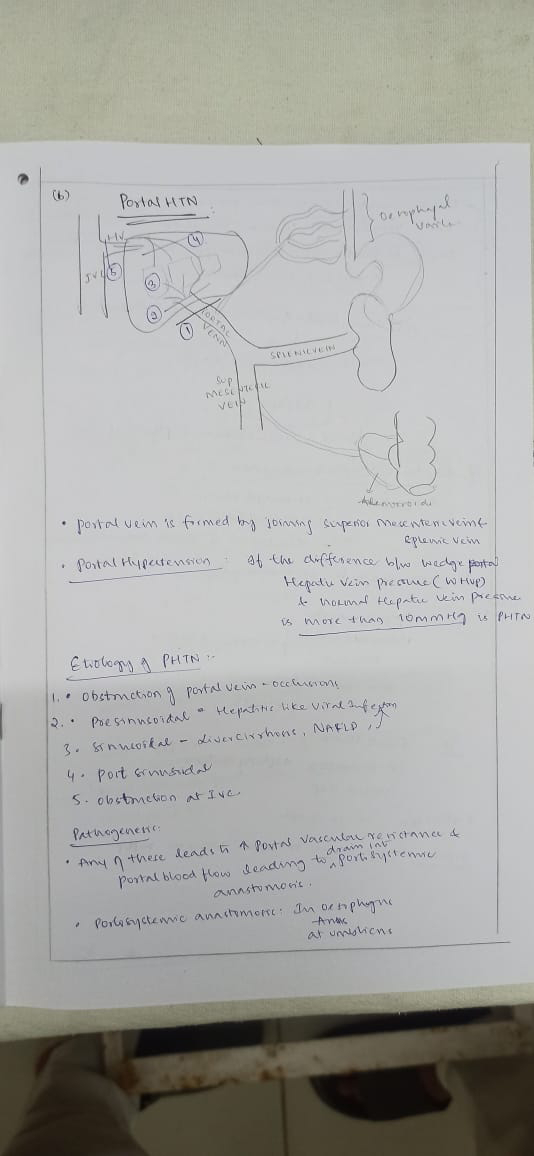 (b)
Portal HTN :
HV
IVC
5
4
3
2
1
PORTAL
VEIN
SPLENIC VEIN
SUP
MESENTERIC
VEIN
} Oesophageal
Hemorroids
• portal vein is formed by joining superior mesenteric vein &
splenic vein
• Portal Hypertension : If the difference b/w wedge portal
Hepatic vein pressure (WHVP)
& normal Hepatic vein pressure
is more than 10mmHg is PHTN
Etiology of PHTN :-
1. • Obstruction of portal vein - occlusions
2. • Presinusoidal - Hepatitis like viral infection
3. sinusoidal - liver cirrhosis, NAFLD
4. post sinusoidal
5. obstruction at IVC
Pathogenesis:
• Any of these leads to ↑ Portal vascular resistance &
portal blood flow leading to drain into portosystemic
anastomosis.
• Portosystemic anastomosis: In oesophagus
Anus
at umblicus